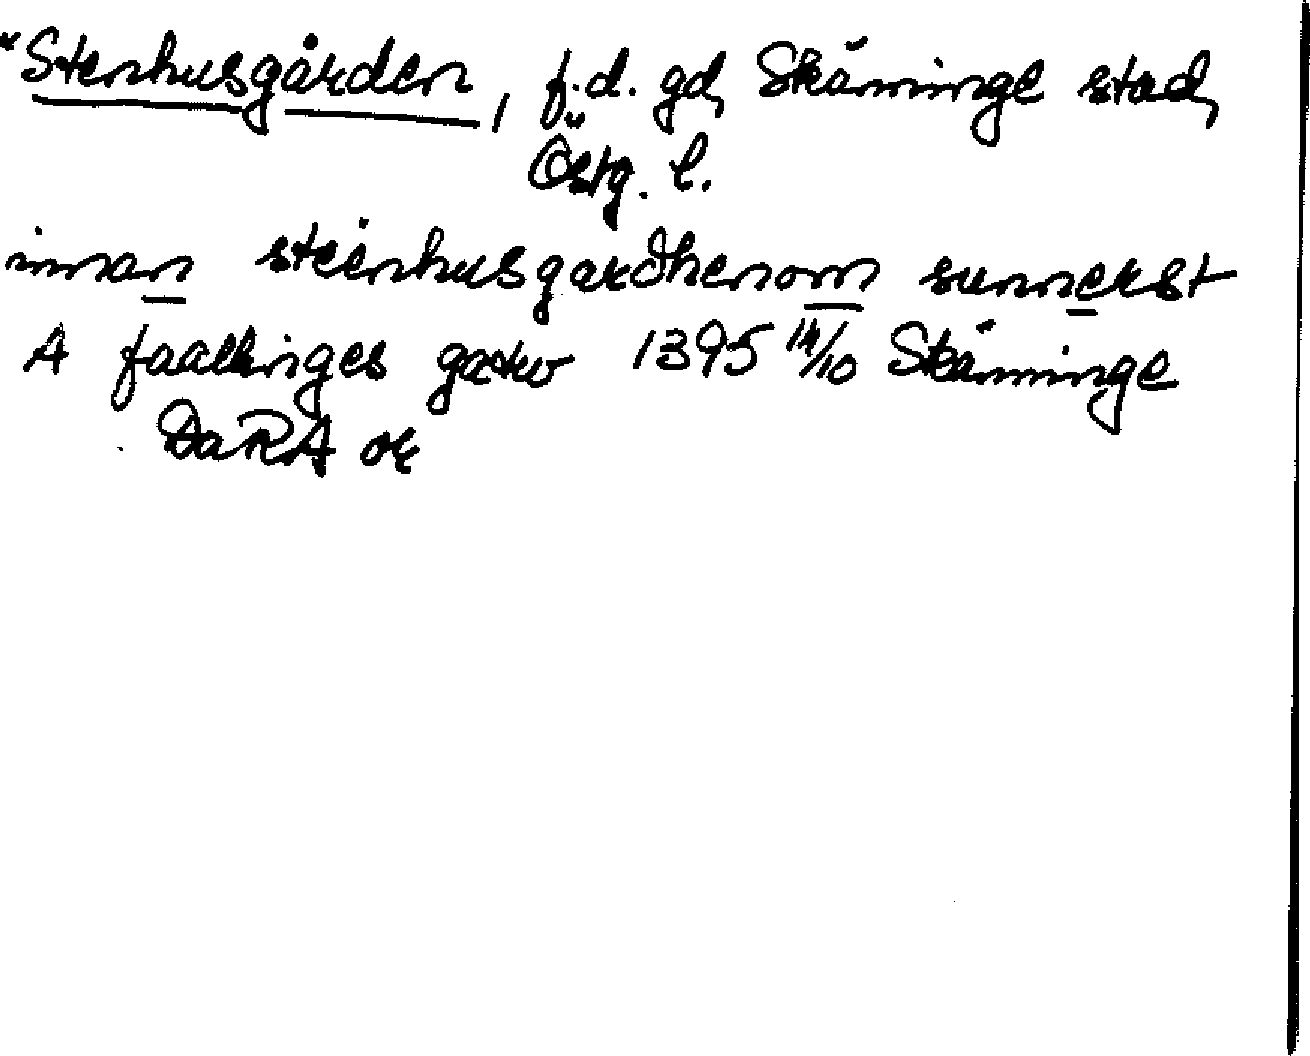 *Stenhusgården, f.d. gd, Skänninge stad,
Östg. l.
innan steenhusgardhenom sunnerst
A faallinges gatw 1395 14/10 Skänninge
DaRA or